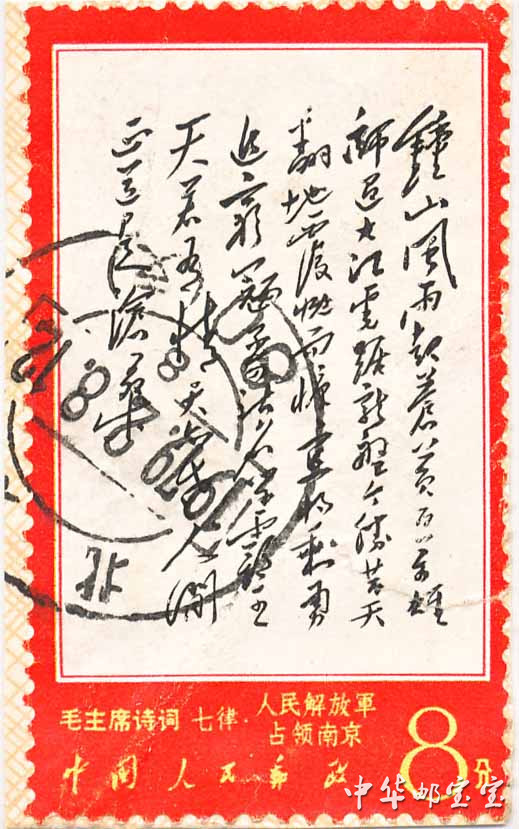 鐘山風雨起蒼黃百万雄
師過大江虎踞龍盤今勝昔天
翻地覆慨而慷宜将剩勇
追穷寇不可沽名学霸王
天若有情天亦老人间
正道是滄桑
北
毛主席诗词 七律·人民解放軍
占领南京
中国人民邮政
8分
中华邮宝宝